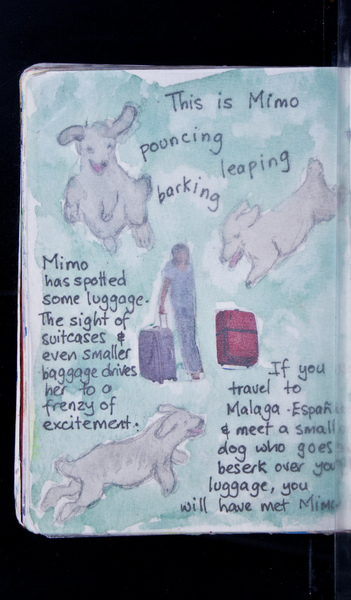 This is Mimo
pouncing
leaping
barking
Mimo
has spotted
some luggage.
The sight of
suitcases &
even smaller
baggage drives
her to a
frenzy of
excitement.
If you
travel to
Malaga - Españ
& meet a small
dog who goes
beserk over you
luggage, you
will have met Mim